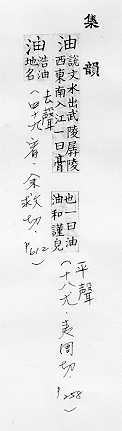 集韻
油
說文水出武陵孱陵
西東南入江一曰膏
也一曰油
油和謹皃
平聲
(十八尤·夷周切 P258)
油
浩油
地名
去聲
(四十九宥·余救切·P612)